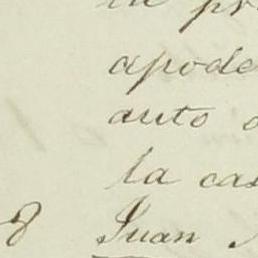 la pr
apode
auto
la cas
8 Juan